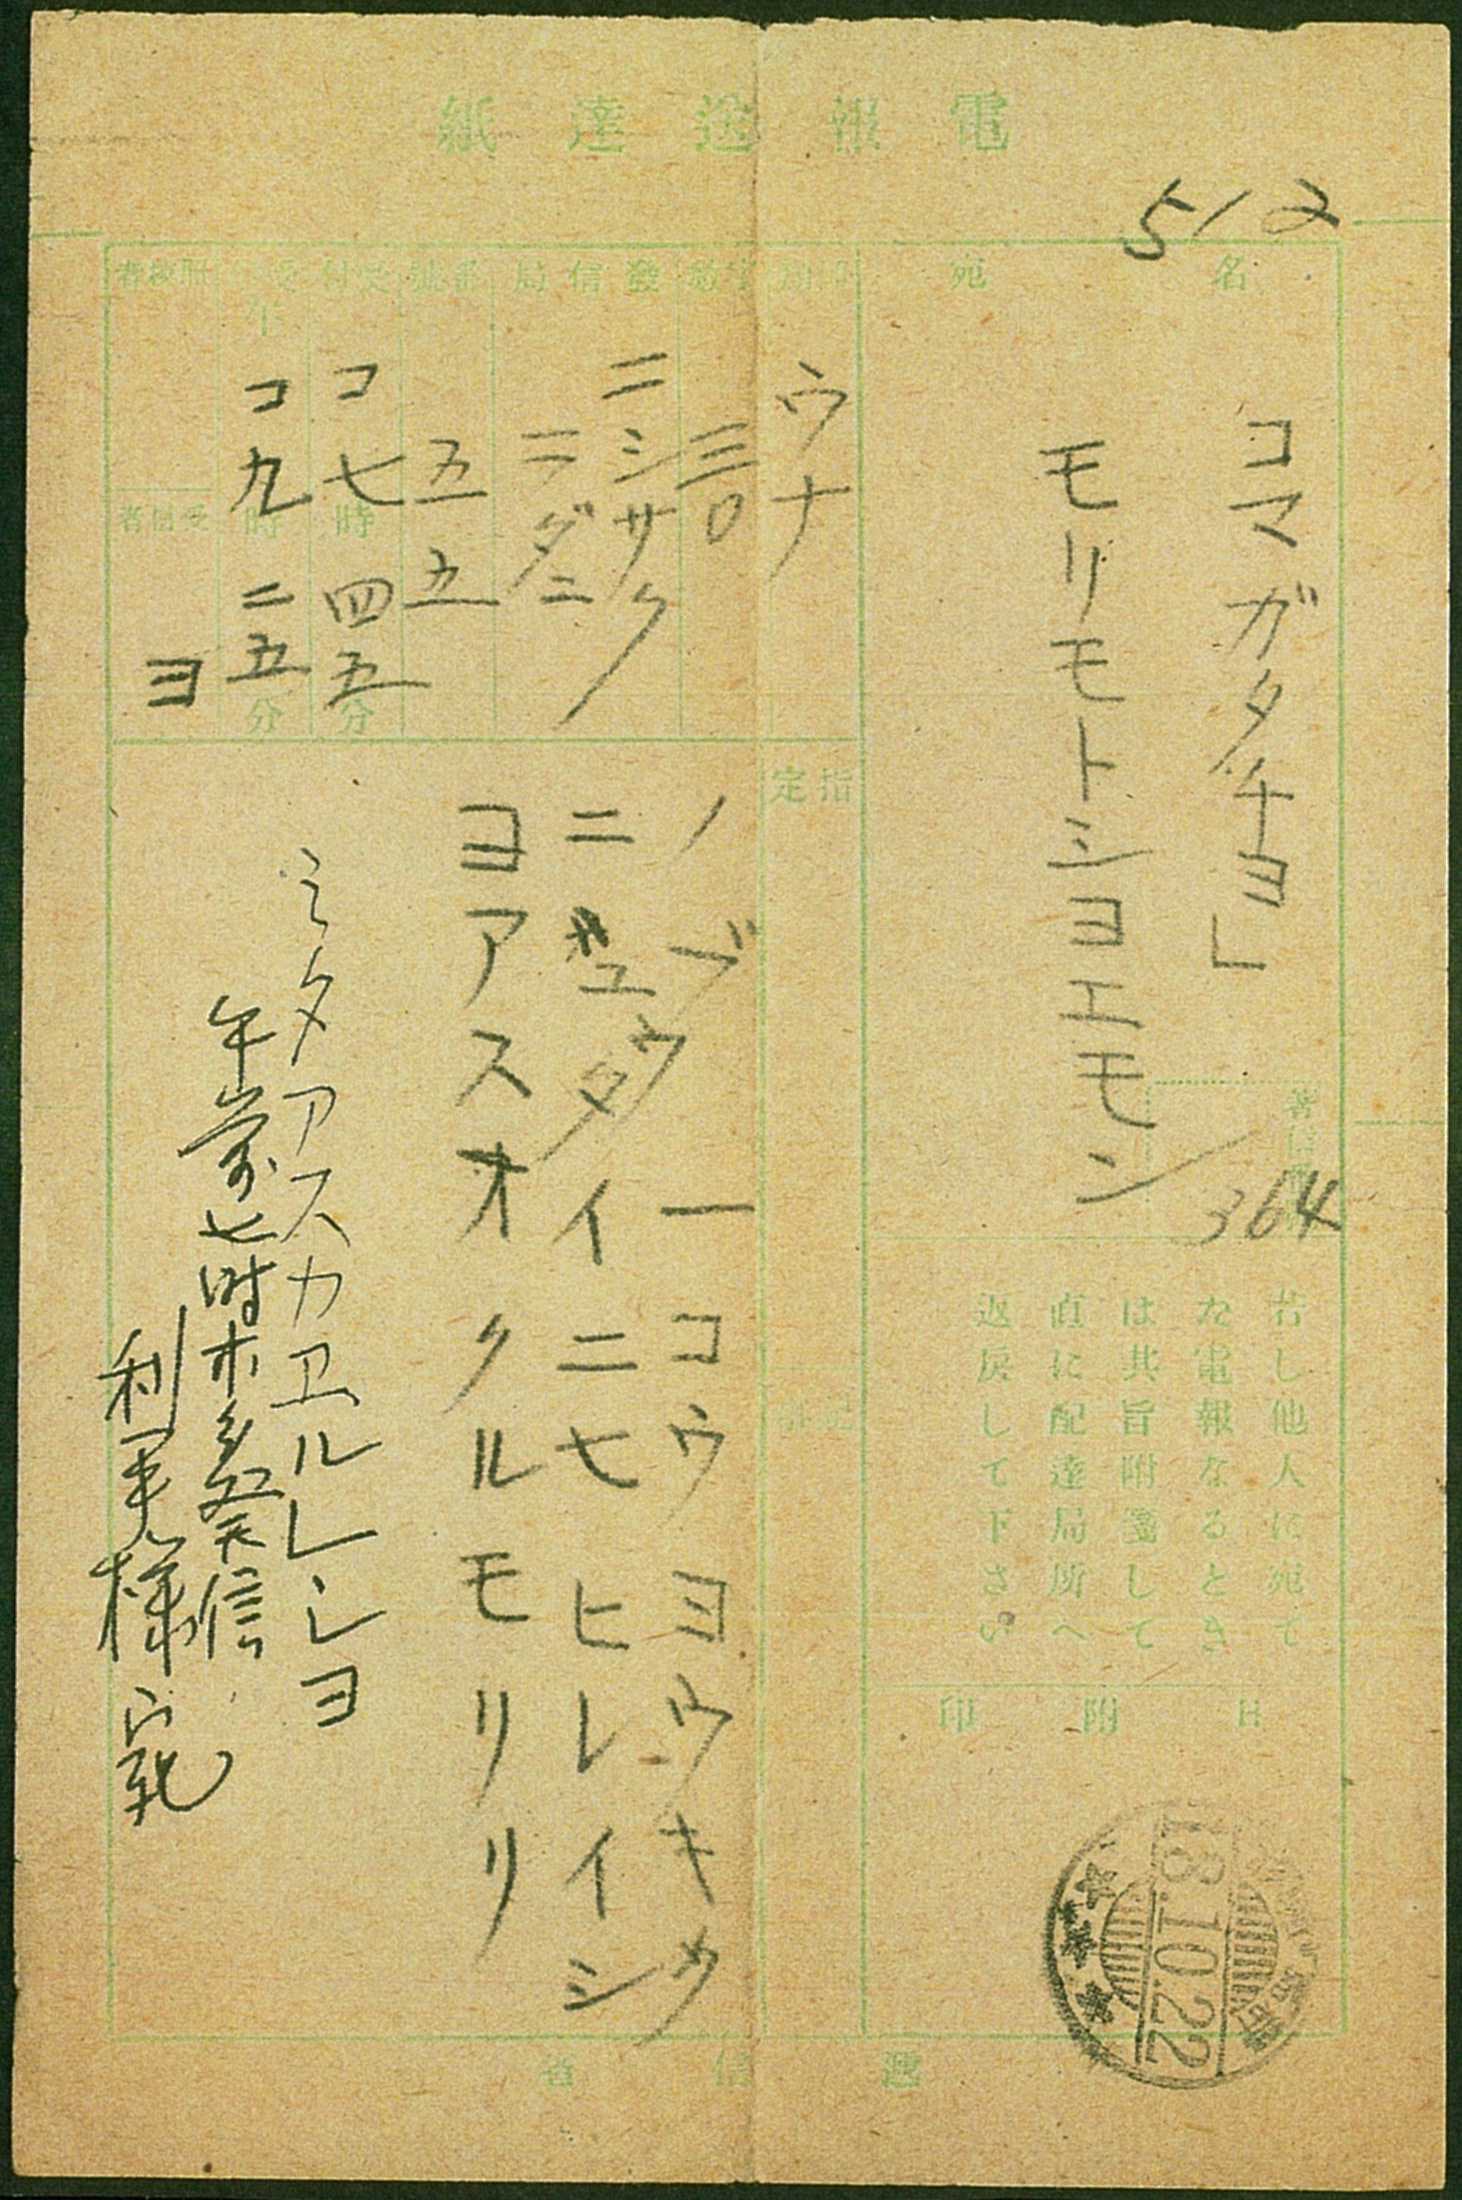 電報送達紙
512
宛名
コマガタチヨ」
モリモトシヨエモン
364
若し他人に宛て
た電報なるとき
は共旨附箋して
直に配達局所へ
返戻して下さい
日附印
18.10.22
ウナ
三〇
發信局
ニシサク
ニダニ
五五
コ七時四五分
午
コ九時二五分
ヨ
指定
ノブウ一コウヨウキウ
ニユウタイニセヒレイシ
ヨアスオクルモリリ
ミタアスカエルレンヨ
午前七時
發信
利
様宛
遞信省